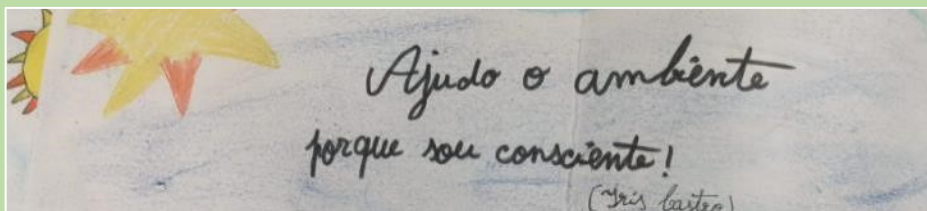 Ajudo o ambiente
porque sou consciente!
(Iris Castro)